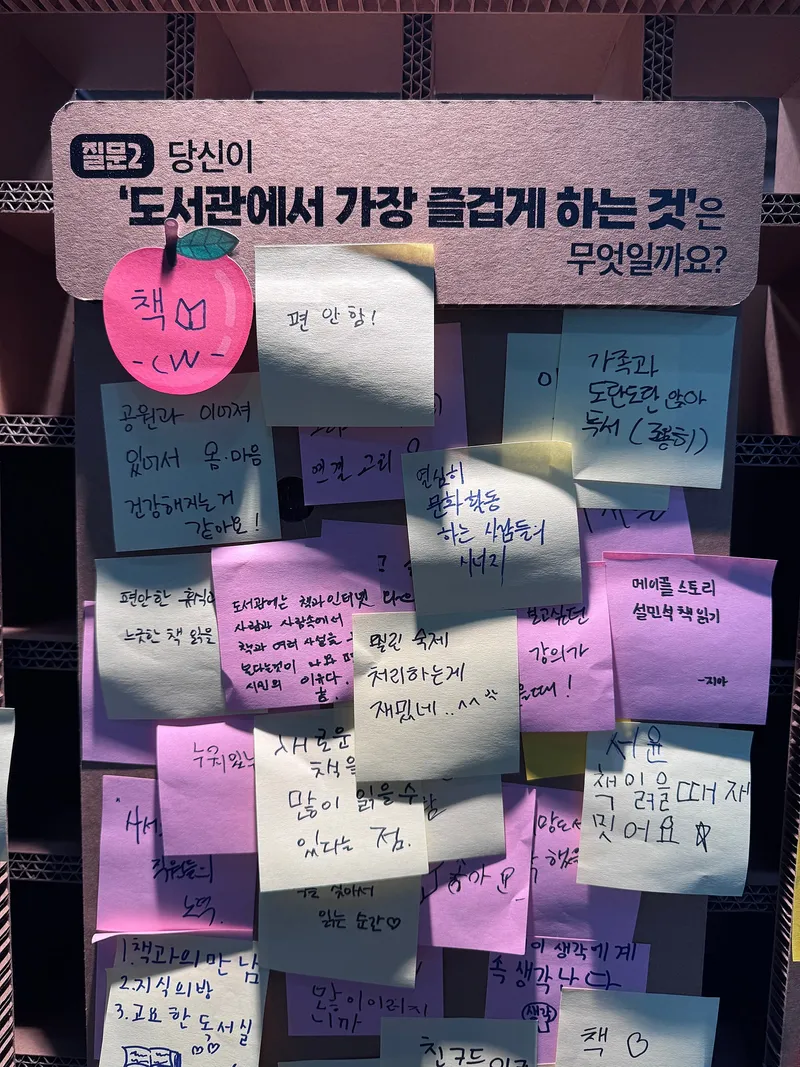 질문2 당신이
'도서관에서 가장 즐겁게 하는 것'은
무엇일까요?
책
-CW-
편안함!
가족과
도란도란 앉아
독서 (조용히)
공원과 이어져
있어서 몸·마음
건강해지는거
같아요!
연결 고리
열심히
문화활동
하는 사람들의
시너지
편안한
느긋한 책 읽을
도서관에는 책과 인터넷
사람과 사람속에서
책과 여러 사실을
시민의 이유다.
밀린 숙제
처리하는게
재밌네..^^
보고싶던
강의가
메이플 스토리
설민석 책 읽기
-지아
새로운
책을
많이 읽을 수
있다는 점.
서윤
책 읽을 때 재
밋어요
사서,
직원들의
노력.
좋아요
찾아서
읽는 순간♡
1. 책과의 만남
2. 지식의 방
3. 고요한 독서실
많이
니까
생각에 계
속 생각나다
생각
책 ♡